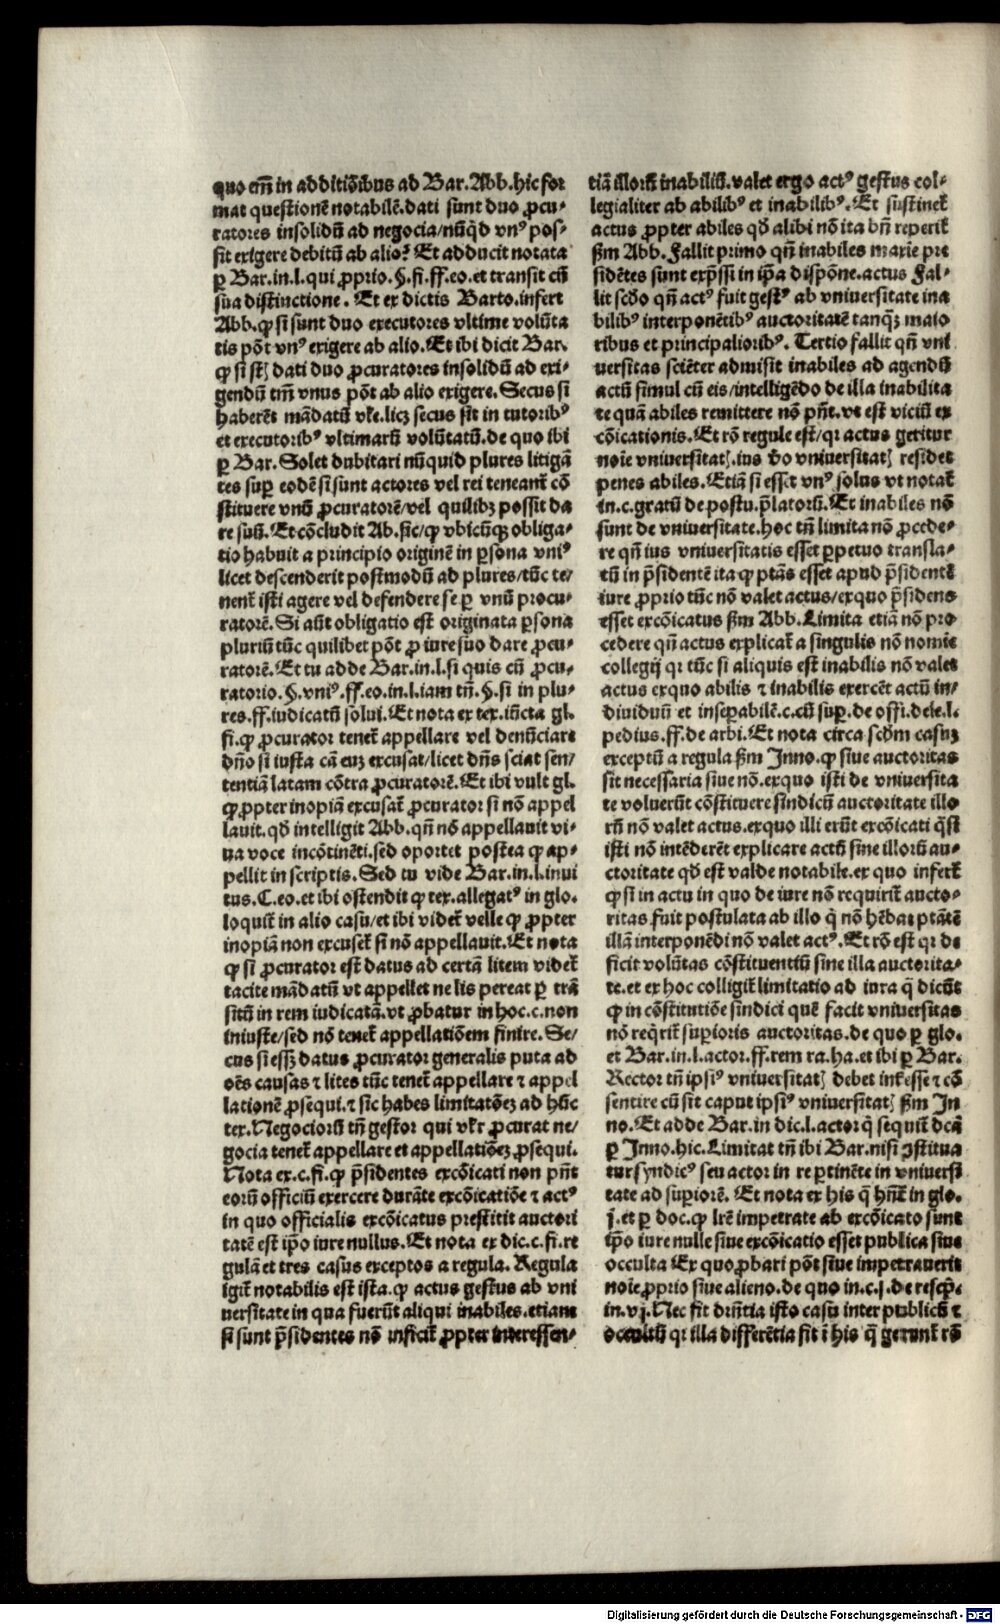 quo em̄ in additiōibus ad Bar. Abb. hic for
mat questionē notabilē. dati sunt duo ꝓcu-
ratores insolidū ad negocia/nūq̇d vnꝰ pos-
sit exigere debitū ab alio? Et adducit notata
ꝑ Bar. in. l. qui ꝓprio. §. fi. ff. eo. et transit cū
sua distinctione. Et ex dictis Barto. infert
Abb. ꝙ si sunt duo executores vltime volūta
tis pōt vnꝰ exigere ab alio. Et ibi dicit Bar.
ꝙ si st̄ dati duo ꝓcuratores insolidū ad exi-
gendū tm̄ vnus pōt ab alio exigere. Secus si
haberēt mādatū vƚe. licꝫ secus sit in tutoribꝰ
et executoribꝰ vltimarū volūtatū. de quo ibi
ꝑ Bar. Solet dubitari nūquid plures litigā
tes suꝑ eodē si sunt actores vel rei teneant̄ cō
stituere vnū ꝓcuratorē/vel quilibꝫ possit da
re suū. Et cōcludit Ab. sic/ꝙ vbicūqꝫ obliga-
tio habuit a principio originē in ꝑsona vniꝰ
licet descenderit postmodū ad plures/tūc te/
nent̄ isti agere vel defendere se ꝑ vnū procu-
ratorē. Si aūt obligatio est originata ꝑsona
pluriū tūc quilibet pōt ꝓ iure suo dare ꝓcu-
ratorē. Et tu adde Bar. in. l. si quis cū ꝓcu-
ratorio. §. vniꝰ. ff. eo. in. l. iam tn̄. §. si in plu-
res. ff. iudicatū solui. Et nota ex tex. iūcta gl.
fi. ꝙ ꝓcurator tenet̄ appellare vel denūciare
dn̄o si iusta cā euꝫ excusat/licet dn̄s sciat sen/
tentiā latam cōtra ꝓcuratorē. Et ibi vult gl.
ꝙ ꝓpter inopiā excusat̄ ꝓcurator si nō appel
lauit. qd̄ intelligit Abb. qn̄ nō appellauit vi-
ua voce incōtinēti. sed oportet postea ꝙ ap-
pellit in scriptis. Sed tu vide Bar. in. l. inui
tus. C. eo. et ibi ostendit ꝙ tex. allegatꝰ in glo.
loquit̄ in alio casu/et ibi videt̄ velle ꝙ ꝓpter
inopiā non excuset̄ si nō appellauit. Et nota
ꝙ si ꝓcurator est datus ad certā litem videt̄
tacite mādatū vt appellet ne lis pereat ꝑ trā
sitū in rem iudicatā. vt ꝓbatur in hoc. c. non
iniuste/sed nō tenet̄ appellatiōem finire. Se/
cus si essꝫ datus ꝓcurator generalis puta ad
oēs causas ⁊ lites tūc tenet̄ appellare ⁊ appel
lationē ꝓsequi. ⁊ sic habes limitatōeꝫ ad hūc
tex. Negociorū tn̄ gestor qui vƚr ꝓcurat ne/
gocia tenet̄ appellare et appellatiōeꝫ ꝓsequi.
Nota ex. c. fi. ꝙ p̄sidentes excōicati non pn̄t
eorū officiū exercere durāte excōicatiōe ⁊ actꝰ
in quo officialis excōicatus prestitit auctori
tatē est ip̄o iure nullus. Et nota ex dic. c. fi. re
gulā et tres casus exceptos a regula. Regula
igit̄ notabilis est ista. ꝙ actus gestus ab vni
uersitate in qua fuerūt aliqui inabiles. etiam
si sunt p̄sidentes nō inficit̄ ꝓpter interessen-
tiā illorū inabiliū. valet ergo actꝰ gestus col-
legialiter ab abilibꝰ et inabilibꝰ. Et sustinet̄
actus ꝓpter abiles qd̄ alibi nō ita bn̄ reperit̄
ẜm Abb. Fallit primo qn̄ inabiles maxīe pre
sidētes sunt exp̄ssi in ip̄a dispōne. actus Fal-
lit scd̄o qn̄ actꝰ fuit gestꝰ ab vniuersitate ina
bilibꝰ interponētibꝰ auctoritatē tanqꝫ maio
ribus et principalioribꝰ. Tertio fallit qn̄ vni
uersitas sciēter admisit inabiles ad agendū
actū simul cū eis/intelligēdo de illa inabilita
te quā abiles remittere nō pn̄t. vt est viciū ex
cōicationis. Et rō regule est/qꝛ actus geritur
noīe vniuersitatꝭ. ius v̄o vniuersitatꝭ residet
penes abiles. Etiā si esset vnꝰ solus vt notat̄
in. c. gratū de postu. p̄latorū. Et inabiles nō
sunt de vniuersitate. hoc tn̄ limita nō ꝓcede-
re qn̄ ius vniuersitatis esset ꝑpetuo transla-
tū in p̄sidentē ita ꝙ ptās esset apud p̄sidentē
iure ꝓprio tūc nō valet actus/exquo p̄sidens
esset excōicatus ẜm Abb. Limita etiā nō pro
cedere qn̄ actus explicat̄ a singulis nō nomīe
collegij qꝛ tūc si aliquis est inabilis nō valet
actus exquo abilis ⁊ inabilis exercēt actū in/
diuiduū et insepabilē. c. cū suꝑ. de offi. dele. l.
pedius. ff. de arbi. Et nota circa scd̄m casuꝫ
exceptū a regula ẜm Inno. ꝙ siue auctoritas
sit necessaria siue nō. exquo isti de vniuersita
te voluerūt cōstituere sindicū auctoritate illo
rū nō valet actus. exquo illi erūt excōicati q̄si
isti nō intēderēt explicare actū sine illorū au-
ctoritate qd̄ est valde notabile. ex quo infert̄
ꝙ si in actu in quo de iure nō requirit̄ aucto-
ritas fuit postulata ab illo q̄ nō hēbat ptātē
illā interponēdi nō valet actꝰ. Et rō est qꝛ de
ficit volūtas cōstituentiū sine illa auctorita-
te. et ex hoc colligit̄ limitatio ad iura q̄ dicūt
ꝙ in cōstitutiōe sindici quē facit vniuersitas
nō req̇rit̄ suꝑioris auctoritas. de quo ꝑ glo.
et Bar. in. l. actor. ff. rem ra. ha. et ibi ꝑ Bar.
Rector tn̄ ipsiꝰ vniuersitatꝭ debet int̄esse ⁊ cō
sentire cū sit caput ipsiꝰ vniuersitatꝭ ẜm In
no. Et adde Bar. in dic. l. actor q̄ sequit̄ dc̄ā
ꝑ Inno. hic. Limitat tn̄ ibi Bar. nisi ꝯstitua
tur syndicꝰ seu actor in re ꝑtinēte in vniuersi
tate ad suꝑiorē. Et nota ex his q̄ hn̄t̄ in glo.
j. et ꝑ doc. ꝙ lr̄e impetrate ab excōicato sunt
ip̄o iure nulle siue excōicatio esset publica siue
occulta Ex quo ꝓbari pōt siue impetrauerit
noīe ꝓprio siue alieno. de quo in. c. j. de rescp̄.
in. vj. Nec fit dr̄ntia isto casu inter publicū ⁊
occultū qꝛ illa differētia fit ī his q̄ gerunt̄ rō
Digitalisierung gefördert durch die Deutsche Forschungsgemeinschaft - DFG